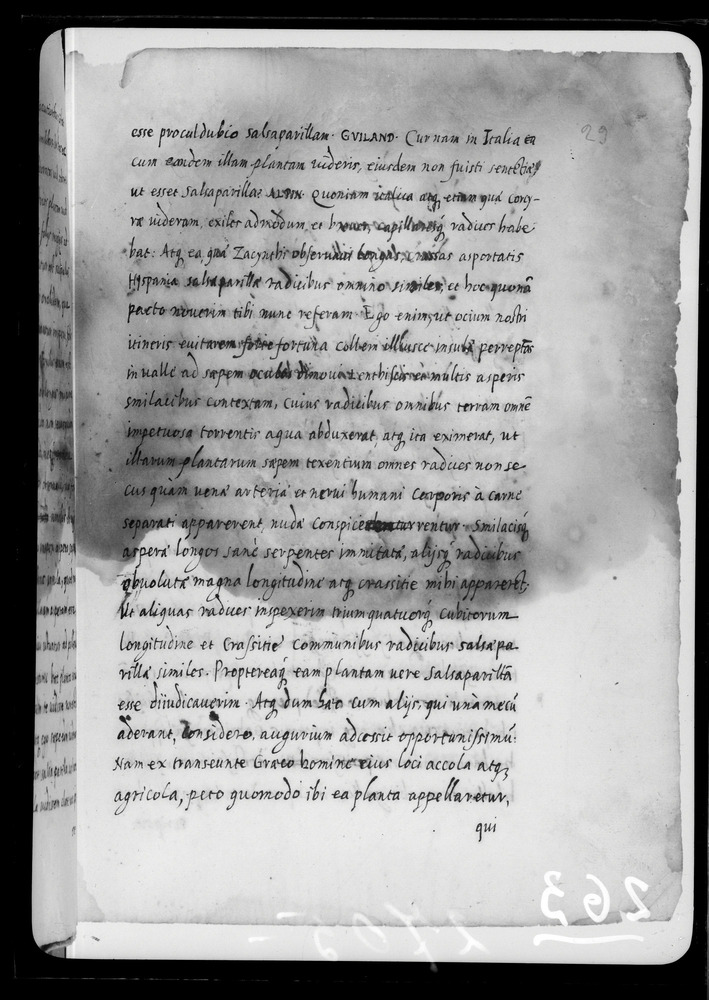 29
esse proculdubio salsaparillam. GVILAND. Cur nam in Italia ea
cum eandem illam plantam uideris, eiusdem non fuisti sententiæ
ut esset Salsaparilla? ALPIN. Quoniam italica atq; etiam quã corcy-
ræ uideram, exiles admodum, et breues, capillaresq; radices habe
bat: Atq; ea quã Zacynthi obseruaui longas, crassas asportatis
Hispania salsaparillæ radicibus omnino similes, et hoc quonã
pacto nouerim tibi nunc referam. Ego enim, ut ocium nostri
itineris euitarem forte fortuna collem illiusce insulæ perreptãs
in ualle ad sæpem oculos dimoui multis asperis
smilacibus contextam, cuius radicibus omnibus terram omnẽ
impetuosa torrentis aqua abduxerat, atq; ita eximerat, ut
illarum plantarum sæpem texentium omnes radices non se
cus quam uenæ arteriæ et nerui humani corporis à carne
separati apparerent, nudæ conspicerentur. Smilacisq;
asperæ longos sanè serpentes immitatæ, alijsq; radicibus
obuolutæ magna longitudine atq; crassitie mihi apparerẽt,
Ut aliquas radices inspexerim trium quatuorq; cubitorum
longitudine et crassitie communibus radicibus salsæpa
rillæ similes. Proptereaq; eam plantam uere salsaparillã
esse diiudicauerim. Atq; dum hæc cum alijs, qui unà mecũ
aderant, considero, augurium adcessit opportunissimũ.
Nam ex transeunte Græco homine eius loci accola atq;
agricola, peto quomodo ibi ea planta appellaretur,
qui
263
2705